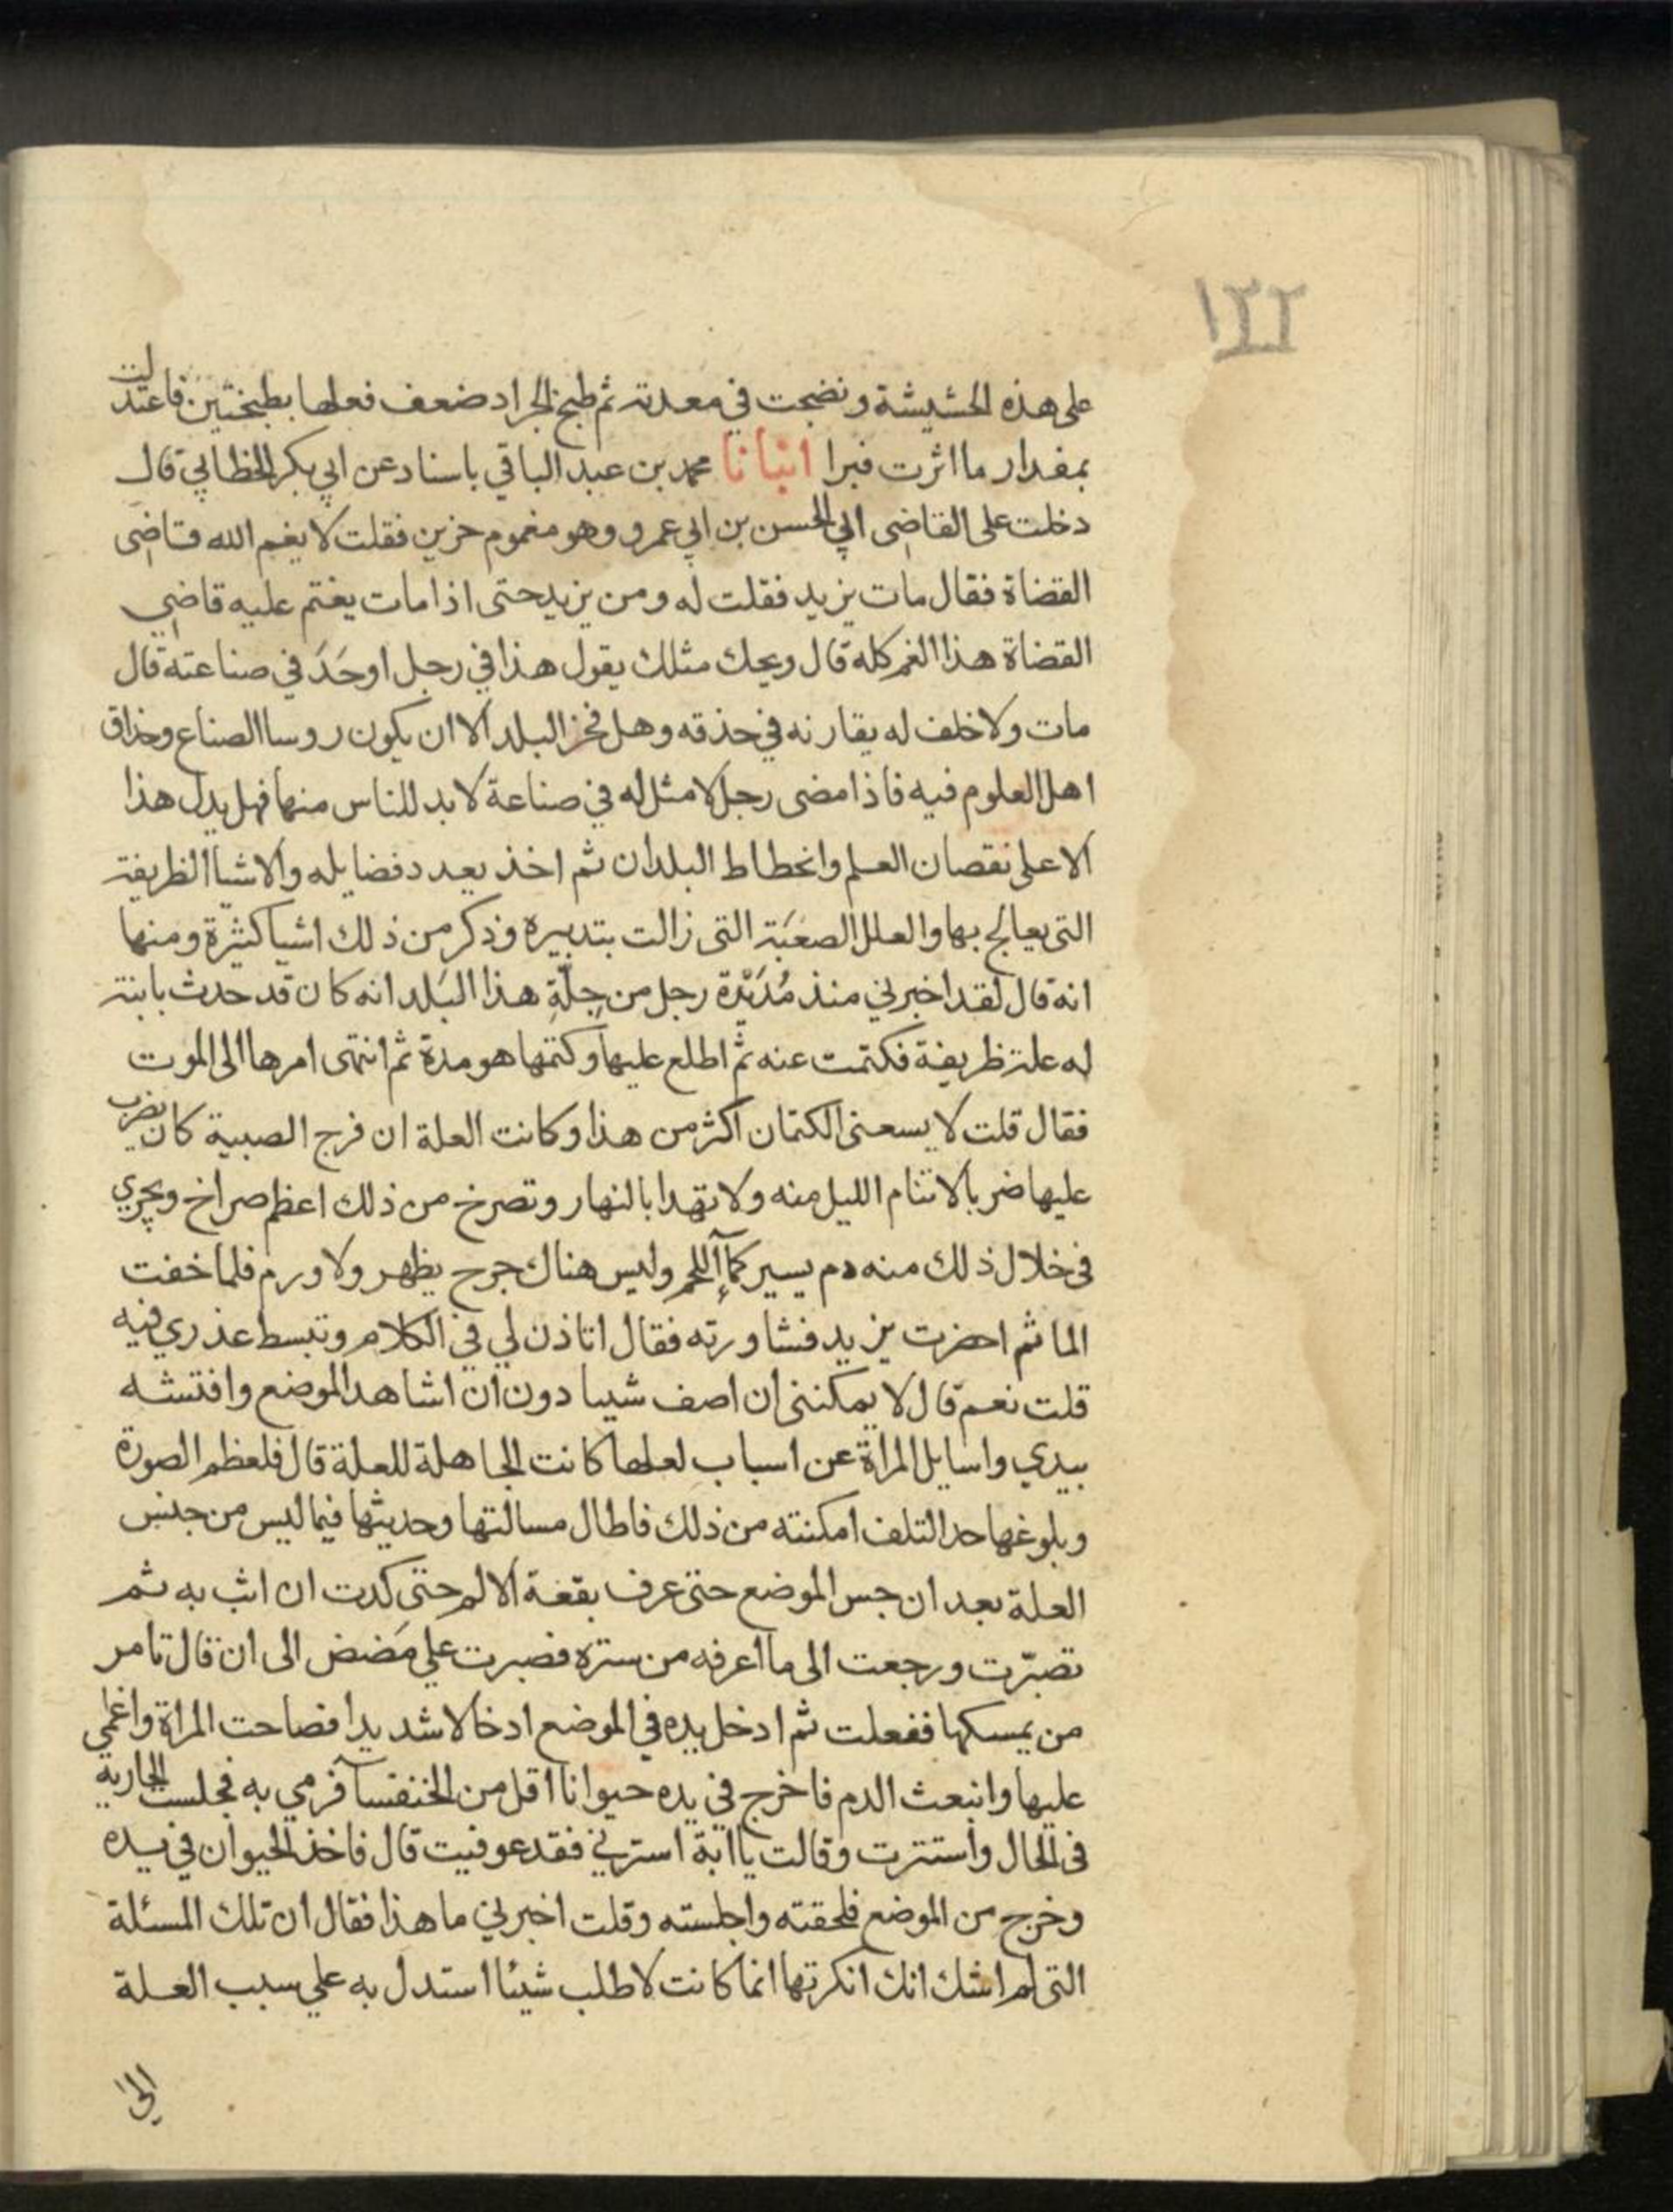 ١٢٢
على هذه الحشيشة ونضجت في معدته ثم طبخ الجراد ضعف فعلها بطبختين فاعتدلت
بمقدار ما اثرت فبرا انبانا محمد بن عبد الباقي باسناد عن ابي بكر الخطابي قال
دخلت على القاضى ابي الحسن بن ابي عمرو وهو مغموم حزين فقلت لا يغم الله قاضى
القضاة فقال مات يزيد فقلت له ومن يزيد حتى اذا مات يغتم عليه قاضي
القضاة هذا الغم كله قال ويحك مثلك يقول هذا في رجل اوحَدَ في صناعته قال
مات ولا خلف له يقارنه في حذقه وهل فخر البلد الا ان يكون روسا الصناع وحذاق
اهل العلوم فيه فاذا مضى رجل لا مثل له في صناعة لا بد للناس منها فهل يدل هذا
الا على نقصان العلم وانحطاط البلدان ثم اخذ يعدد فضايله والاشيا الظريفة
التى يعالج بها والعلل الصعَبَة التى زالت بتدبيره وذكر من ذلك اشيا كثيرة ومنها
انه قال لقد اخبرني منذ مُدَيْدَة رجل من جِلّةِ هذا البَلد انه كان قد حدث بابنة
له علة ظريفة فكتمت عنه ثم اطلع عليها وكتمها هو مدة ثم انتهى امرها الى الموت
فقال قلت لا يسعنى الكتمان اكثر من هذا وكانت العلة ان فرج الصبية كان يضرب
عليها ضربا لا تنام الليل منه ولا تهدا بالنهار وتصرخ من ذلك اعظم صراخ ويجري
فى خلال ذلك منه دم يسير كمآءِ اللحم وليس هناك جرح يظهر ولا ورم فلما خفت
الماثم احضرت يزيد فشاورته فقال اتاذن لي في الكلام وتبسط عذري فيه
قلت نعم قال لا يمكننى ان اصف شييا دون ان اشاهد الموضع وافتشه
بيدي واسايل المراة عن اسباب لعلها كانت الجاهلة للعلة قال فلعظم الصورة
وبلوغها حد التلف امكنته من ذلك فاطال مسالتها وحديثها فيما ليس من جنس
العلة بعد ان جس الموضع حتى عرف بقعة الالم حتى كدت ان اثب به ثم
تصبّرت ورجعت الى ما اعرفه من ستره فصبرت علي مَضض الى ان قال تامر
من يمسكها ففعلت ثم ادخل يده في الموضع ادخالا شديدا فصاحت المراة واغمي
عليها وانبعث الدم فاخرج في يده حيوانا اقل من الخنفسآ فرمي به فجلست الجارية
فى الحال واستترت وقالت يا ابة استرني فقد عوفيت قال فاخذ الحيوان في يده
وخرج من الموضع فلحقته واجلسته وقلت اخبرني ما هذا فقال ان تلك المسئلة
التى لم اشك انك انكرتها انما كانت لاطلب شيئا استدل به علي سبب العلة
الى